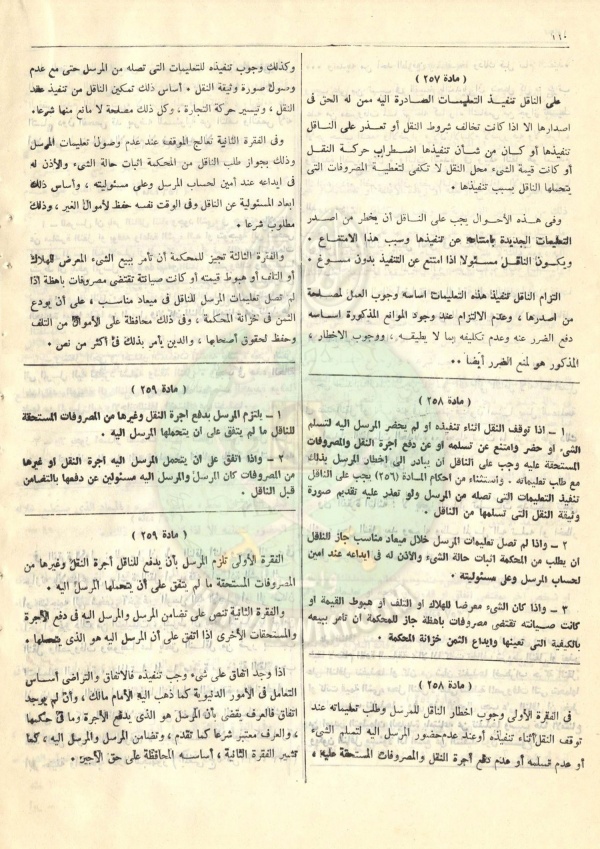 ١١٠
( مادة ٢٥٧ )
على الناقل تنفيذ التعليمات الصادرة اليه ممن له الحق فى
اصدارها الا اذا كانت تخالف شروط النقل أو تعذر على الناقل
تنفيذها أو كان من شأن تنفيذها اضطراب حركة النقل
أو كانت قيمة الشىء محل النقل لا تكفى لتغطية المصروفات التى
يتحملها الناقل بسبب تنفيذها .
وفى هذه الأحوال يجب على الناقل أن يخطر من اصدر
التعليمات الجديدة بامتناعه عن تنفيذها وسبب هذا الامتناع .
ويكون الناقل مسئولا اذا امتنع عن التنفيذ بدون مسوغ .
التزام الناقل تنفيذ هذه التعليمات اساسه وجوب العمل لمصلحة
من اصدرها ، وعدم الالتزام عند وجود الموانع المذكورة اساسه
دفع الضرر عنه وعدم تكليفه بما لا يطيقه ، ووجوب الاخطار ،
المذكور هو لمنع الضرر أيضا ..
( مادة ٢٥٨ )
١ – اذا توقف النقل اثناء تنفيذه او لم يحضر المرسل اليه لتسلم
الشىء او حضر وامتنع عن تسلمه او عن دفع اجرة النقل والمصروفات
المستحقة عليه وجب على الناقل ان يبادر الى اخطار المرسل بذلك
مع طلب تعليماته . واستثناء من احكام المادة (٢٥٦) يجب على الناقل
تنفيذ التعليمات التى تصله من المرسل ولو تعذر عليه تقديم صورة
وثيقة النقل التى تسلمها من الناقل .
٢ – واذا لم تصل تعليمات المرسل خلال ميعاد مناسب جاز للناقل
ان يطلب من المحكمة اثبات حالة الشىء والاذن له فى ايداعه عند امين
لحساب المرسل وعلى مسئوليته .
٣ – واذا كان الشىء معرضا للهلاك او التلف او هبوط القيمة او
كانت صيانته تقتضى مصروفات باهظة جاز للمحكمة ان تامر ببيعه
بالكيفية التى تعينها وايداع الثمن خزانة المحكمة .
( مادة ٢٥٨ )
فى الفقرة الأولى وجوب اخطار الناقل للمرسل وطلب تعليماته عند
توقف النقل أثناء تنفيذه أو عند عدم حضور المرسل اليه لتسلم الشىء
أو عدم تسلمه أو عدم دفع أجرة النقل والمصروفات المستحقة عليه ،
وكذلك وجوب تنفيذه للتعليمات التى تصله من المرسل حتى مع عدم
وصول صورة وثيقة النقل . أساس ذلك تمكين الناقل من تنفيذ عقد
النقل ، وتيسير حركة التجارة ، وكل ذلك مصلحة لا مانع منها شرعا.
وفى الفقرة الثانية تعالج الموقف عند عدم وصول تعليمات المرسل
وذلك بجواز طلب الناقل من المحكمة اثبات حالة الشىء والأذن له
فى ايداعه عند أمين لحساب المرسل وعلى مسئوليته ، وأساس ذلك
ابعاد المسئولية عن الناقل وفى الوقت نفسه حفظ لأموال الغير ، وذلك
مطلوب شرعا .
والفقرة الثالثة تجيز للمحكمة أن تأمر ببيع الشىء المعرض للهلاك
أو التلف أو هبوط قيمته أو كانت صيانته تقتضى مصروفات باهظة اذا
لم تصل تعليمات المرسل للناقل فى ميعاد مناسب ، على أن يودع
الثمن فى خزانة المحكمة ، وفى ذلك محافظة على الأموال من التلف
وحفظ لحقوق أصحابها ، والدين يأمر بذلك فى أكثر من نص .
( مادة ٢٥٩ )
١ – يلتزم المرسل بدفع اجرة النقل وغيرها من المصروفات المستحقة
للناقل ما لم يتفق على ان يتحملها المرسل اليه .
٢ – واذا اتفق على ان يتحمل المرسل اليه اجرة النقل او غيرها
من المصروفات كان المرسل والمرسل اليه مسئولين عن دفعها بالتضامن
قبل الناقل .
( مادة ٢٥٩ )
الفقرة الأولى تلزم المرسل بأن يدفع للناقل أجرة النقل وغيرها من
المصروفات المستحقة ما لم يتفق على أن يتحملها المرسل اليه .
والفقرة الثانية تنص على تضامن المرسل والمرسل اليه فى دفع الأجرة
والمستحقات الأخرى إذا اتفق على أن المرسل اليه هو الذى يتحملها .
اذا وجد اتفاق على شىء وجب تنفيذه فالاتفاق والتراضى أساس
التعامل فى الأمور الدنيوية كما ذهب اليه الأمام مالك ، وأن لم يوجد
اتفاق فالعرف يقضى بأن المرسل هو الذى يدفع الأجرة وما فى حكمها
، والعرف معتبر شرعا كما تقدم ، وتضامن المرسل والمرسل اليه ، كما
تشير الفقرة الثانية ، أساسه المحافظة على حق الأجير .